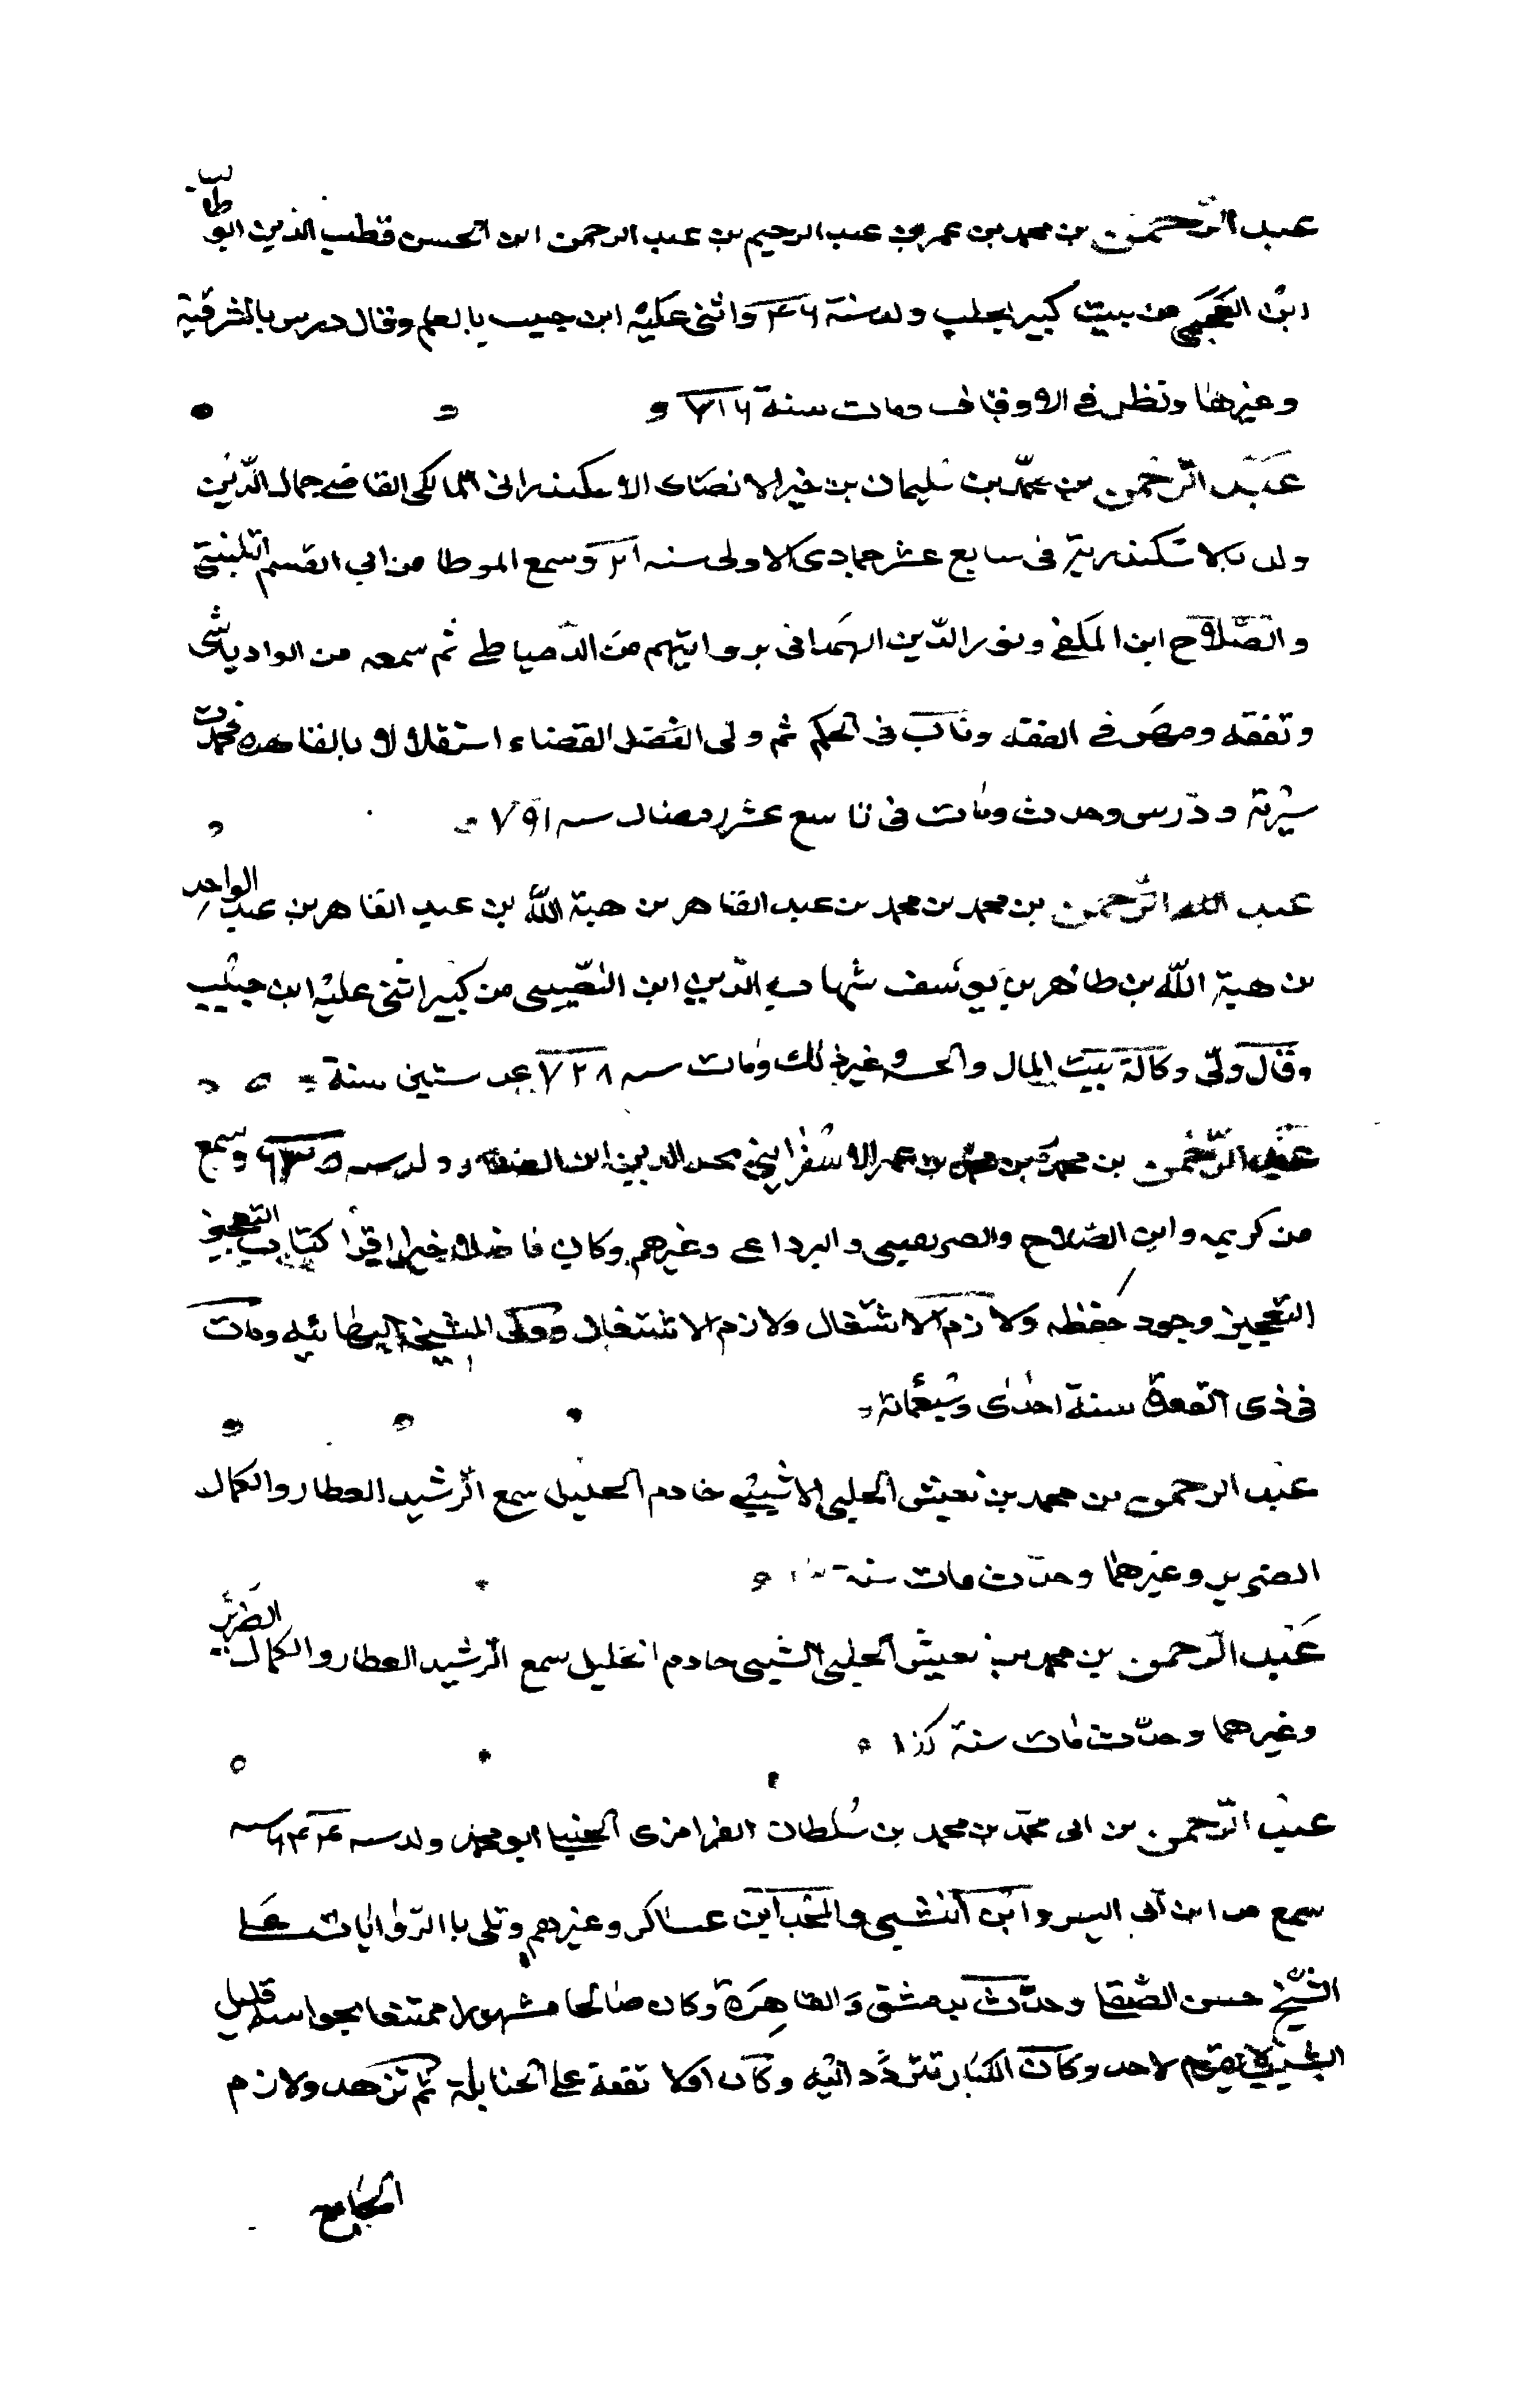 عبد الرحمن بن محمد بن عمر بن عبد الرحيم بن عبد الرحمن ابن الحسن قطب الدين ابو طالب
ابن العجمي من بيت كبير بحلب ولد سنة واثنى عليه ابن حبيب بالعلم وقال درس بالشرقية
وغيرها ونظر في الاوقاف ومات سنة ٧١٦
عبد الرحمن بن محمد بن سليمان بن خير الانصارى الاسكندرانى المالكي القاضي جمال الدين
ولد بالاسكندرية فى سابع عشر جمادى الاولى سنه وسمع الموطا من ابي القسم التلبنتي
والصلاح ابن المكفي ونور الدين الهمدانى بروايتهم من الدمياطي ثم سمعه من الوادياشى
وتفقه ومهر في الفقه وناب فى الحكم ثم ولى القضاء استقلالا بالقاهره فحمدت
سيرته ودرس وحدث ومات فى تاسع عشر رمضان سـنه ٧٩١
عبد الرحمن بن محمد بن محمد بن عبد القاهر بن هبة الله بن عبد القاهر بن عبد الواحد
بن هبة الله بن طاهر بن يوسف شهاب الدين ابن النصيبى من كبير اثنى عليه ابن حبيب
وقال ولى وكالة بيت المال والحسبه وغير ذلك ومات سـنه ٧٢٨ عن ستين سنة
عبد الرحمن بن محمد بن محمد بن عمر الاسفراينى مجد الدين ابن الصفار ولد سـنه ٦٣٥ وسمع
من كريمه وابن الصلاح والصريفينى والبرداعي وغيرهم وكان فاضلا خيرا اقرا كتاب التعجيز
التعجيز وجود حفظه ولازم الاشتغال ولازم الاشتغال وولى المشيخة ومات
فى ذى القعدة سنة احدى وسبعمائة
عبد الرحمن بن محمد بن نعيش الحلبي خادم الخليل سمع الرشيد العطار والكمال
الضرير وغيرهما وحدث مات سنة
عبد الرحمن بن محمد بن نعيش الحلبي خادم الخليل سمع الرشيد العطار والكمال الضرير
وغيرهما وحدث مات سنة كذا
عبد الرحمن بن ابى محمد بن محمد بن سلطان القرامزى الحنبلي ابو محمد ولد سـنه ٦٤٤
سمع من ابن ابي اليسر وابن النشبي والمجد ابن عساكر وغيرهم وتلى بالروايات على
الشيخ حسن الصقلي وحدث بدمشق والقاهرة وكان صالحا مشهورا ممتعا بحواسه قليل
الشيب لا يقوم لاحد وكان الكبار تتردد اليه وكان اولا تفقه على الحنابلة ثم تزهد ولازم
الجامع